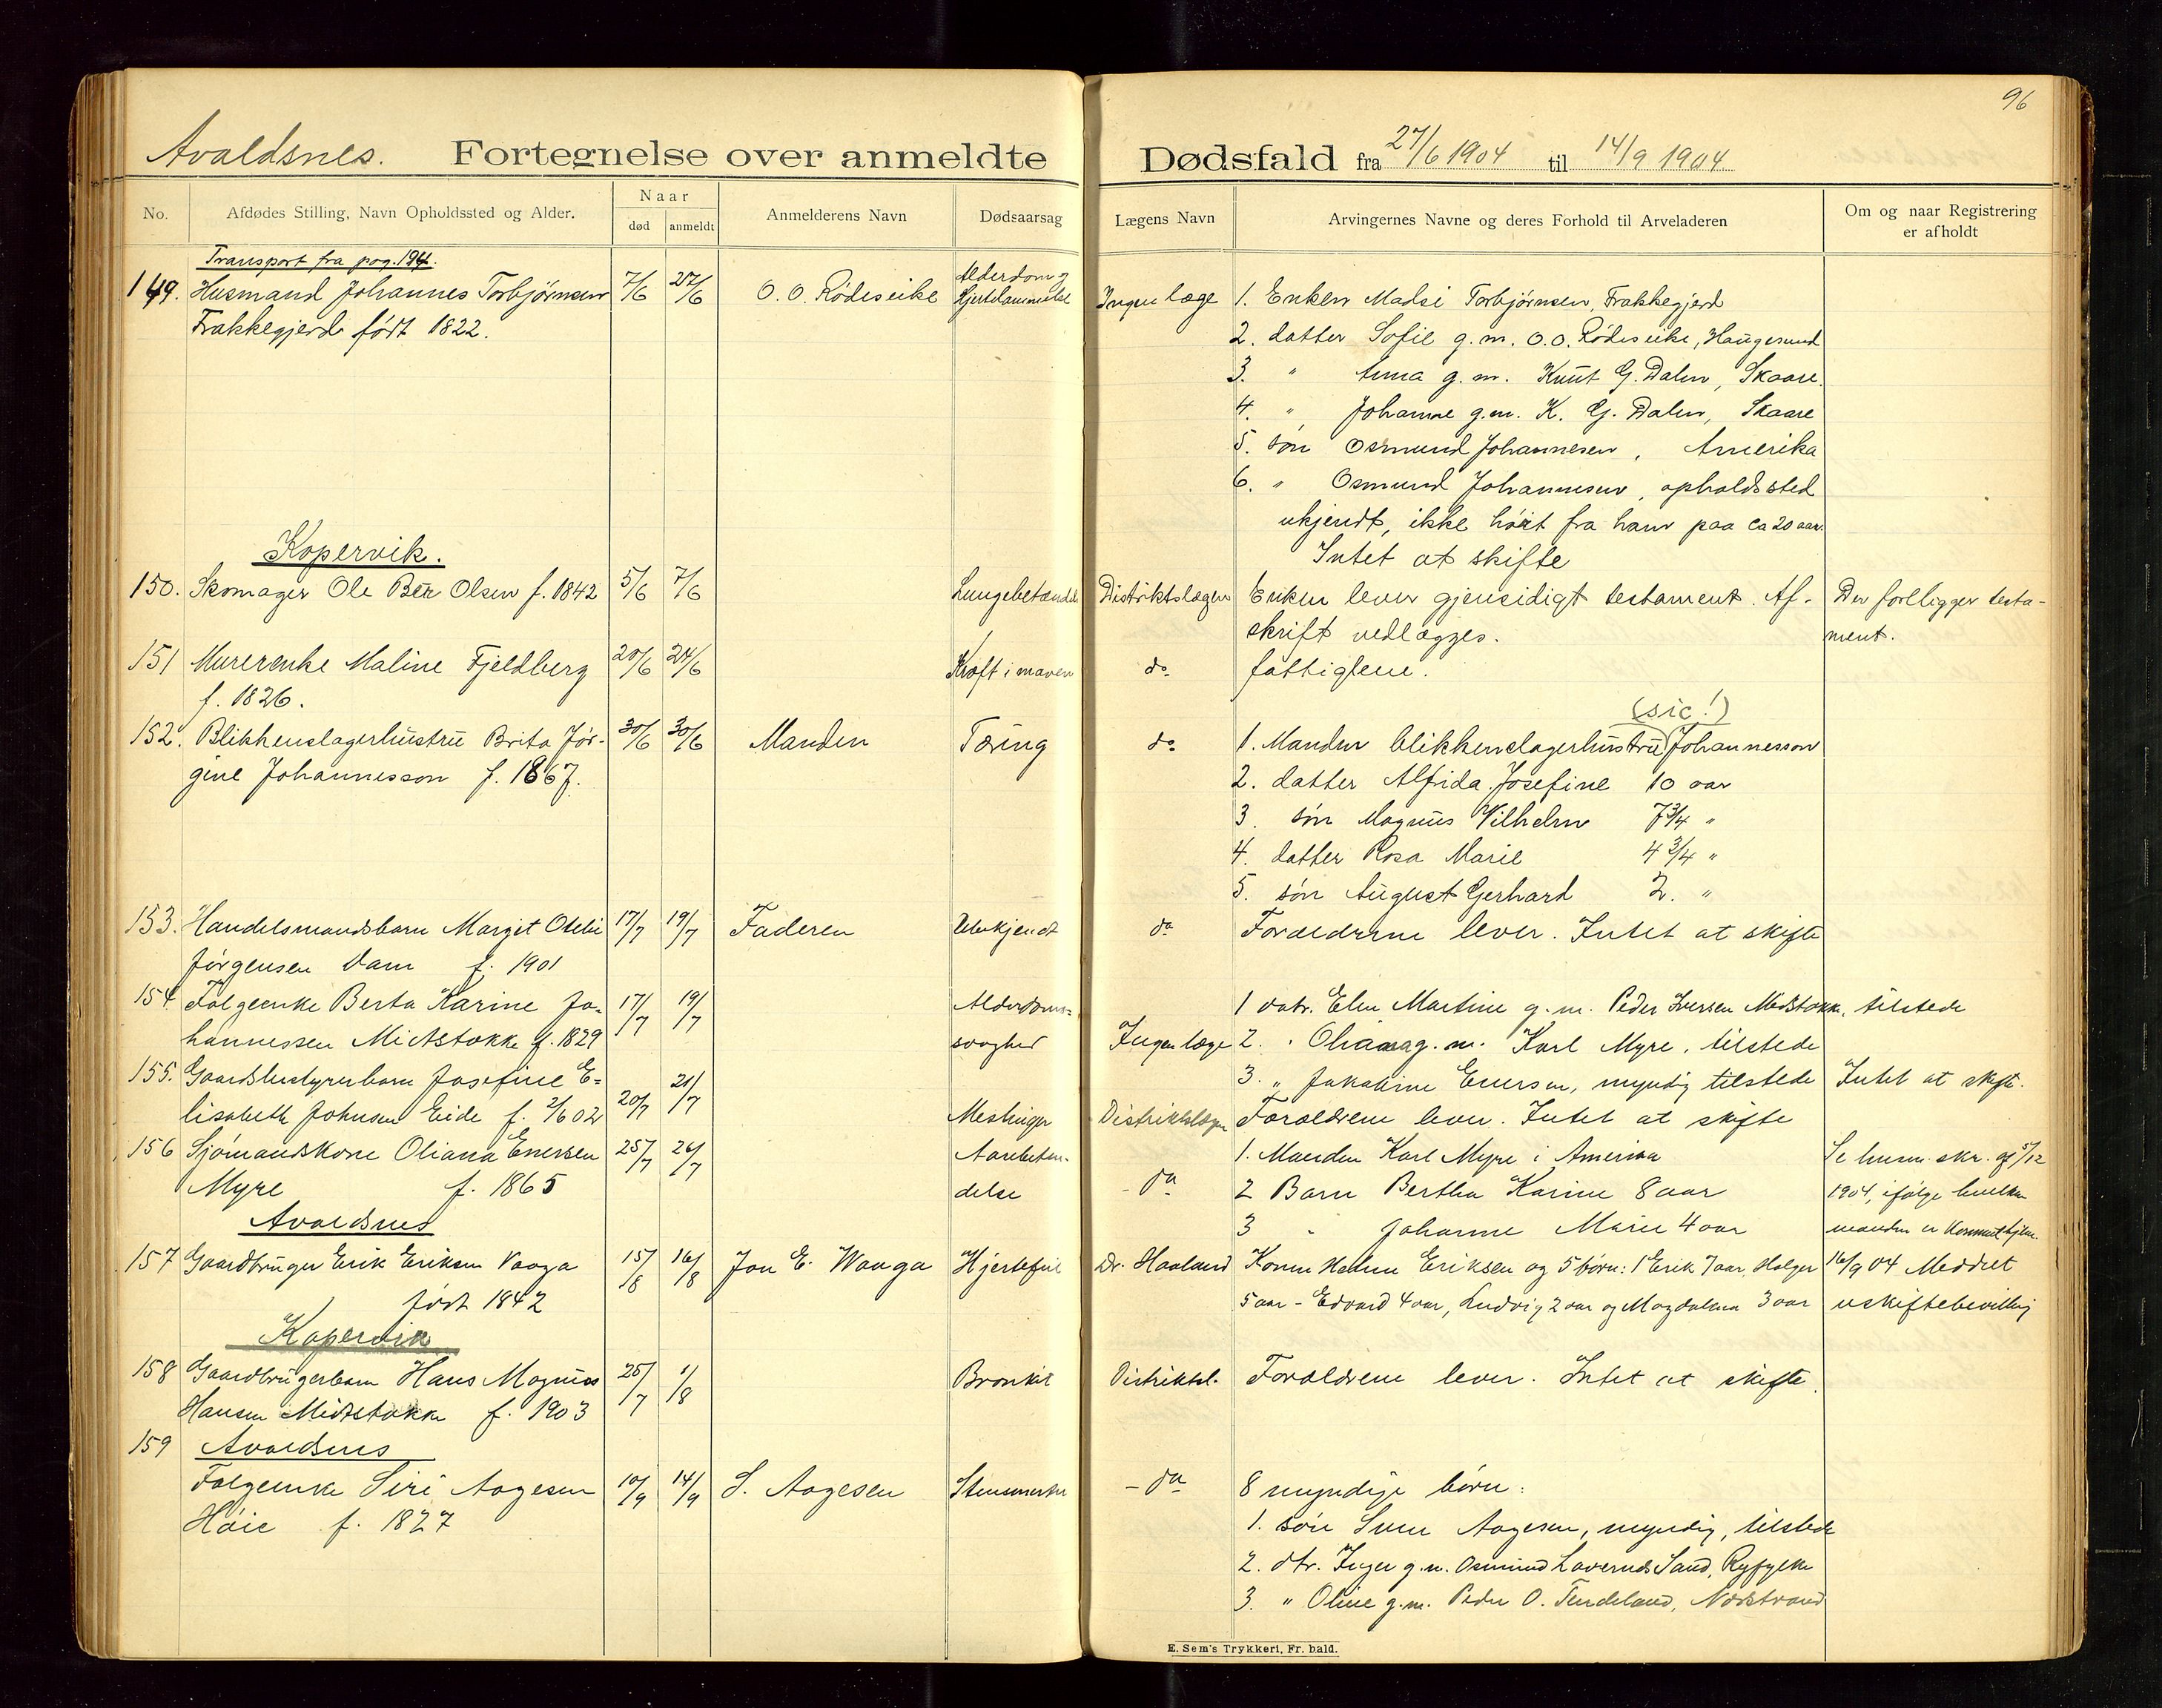 96
Avaldsnes. Fortegnelse over anmeldte Dødsfald fra 27/6 1904 til 14/9 1904
No. Afdødes Stilling, Navn Opholdssted og Alder. Naar død anmeldt Anmelderens Navn Dødsaarsag Lægens Navn Arvingernes Navne og deres Forhold til Arveladeren Om og naar Registrering er afholdt
Transport fra pag. 194.
149. Husmand Johannes Torbjørnsen 7/6 27/6 O. O. Rødeseike Alderdom og Ingen læge 1. Enken Madsi Torbjørnsen, Frakkegjerd
Frakkegjerd født 1822.
2. datter Sofie g.m. O.O. Rødeseike, Haugesund
3. " Anna g.m. Knut G. Dalen, Skaare.
4. " Johanne g.m. K. G. Dalen, Skaare
5. søn Osmund Johannesen, Amerika
6. " Osmund Johannesen, opholdssted
ukjendt, ikke hørt fra ham paa ca 20 aar.
Intet at skifte
Kopervik.
150. Skomager Ole Ber Olsen f. 1842 5/6 7/6 Lungebetændelse Distriktslægen Enken lever gjensidigt testament. Af- Der foreligger testa-
skrift vedlægges. ment.
151 Murerenke Maline Fjeldberg 20/6 24/6 Kræft i maven do fattiglem.
f. 1826.
(sic!)
152. Blikkenslagerhustru Brita Jør- 30/6 30/6 Manden Tæring do 1. Manden blikkenslagerhustru Johannesson
gine Johannesson f. 1867.
2. datter Alfida Josefine 10 aar
3. søn Magnus Vilhelm 7 3/4 "
4. datter Rosa Marie 4 3/4 "
5. søn August Gerhard 2. "
153. Handelsmandsbarn Margit Otelie 17/7 19/7 Faderen Ubekjendt do Forældrene lever. Intet at skifte
Jørgensen Dam f. 1901
154 Folgeenke Berta Karine Jo- 17/7 19/7 Alderdoms- 1 datr. Elen Martine g.m. Peder Iversen Midstokke, tilstede
hannessen Midtstokke f. 1829 svaghed Ingen læge 2. " Oliana g.m. Karl Myre, tilstede
3. " Jakobine Enersen, myndig tilstede Intet at skifte.
155. Gaardbestyrerbarn Josefine E- 20/7 21/7
lisabeth Johnsen Eide f. 2/6 02 Meslinger Distriktslægen Forældrene lever. Intet at skifte
156 Sjømandskone Oliana Enersen 25/7 26/7 Aarebeten- 1. Manden Karl Myre i Amerika Se hum. skr. af 5/12
Myre f. 1865 delse - do 2 Barn Bertha Karine 8 aar 1904, ifølge hvilken
3 " Johanne Marie 4 aar manden er kommet hjem.
Avaldsnes
157 Gaardbruger Erik Eriksen Vaaga 15/8 16/8 Jon E. Waaga Hjertefeil Dr. Haaland Konen Helene Eriksen og 5 børn: 1 Erik 7 aar, Holger 16/9 04 Meddelt
født 1842 5 aar - Edvard 4 aar, Ludvig 2 aar og Magdalena 3 aar uskiftebevilling
Kopervik
158 Gaardbrugerbarn Hans Magnus 25/7 1/8 Bronkit Distriktsl. Forældrene lever. Intet at skifte.
Hansen Midtstokke f. 1903
159 Avaldsnes
Folgeenke Siri Aagesen 10/9 14/9 S. Aagesen - do 8 myndige børn:
Høie f. 1827
1. søn Sven Aagesen, myndig, tilstede
2. dtr. Inger g.m. Osmund Sand, Ryfylke
3. " Oline g.m. Peder O. Tendeland, Nedstrand
E. Sem's Trykkeri, Fr. hald.